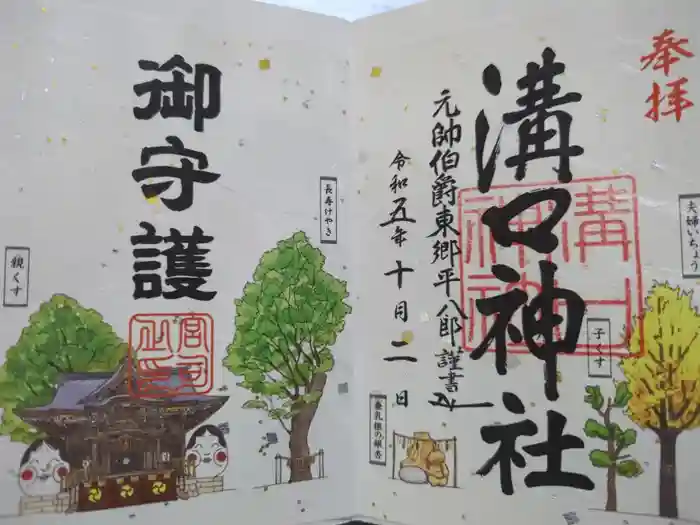 奉拝
溝口神社
元帥伯爵東郷平八郎謹書
令和五年十月二日
夫婦いちょう
子くす
御守護
長寿けやき
親くす
溝口神社
宮司之印